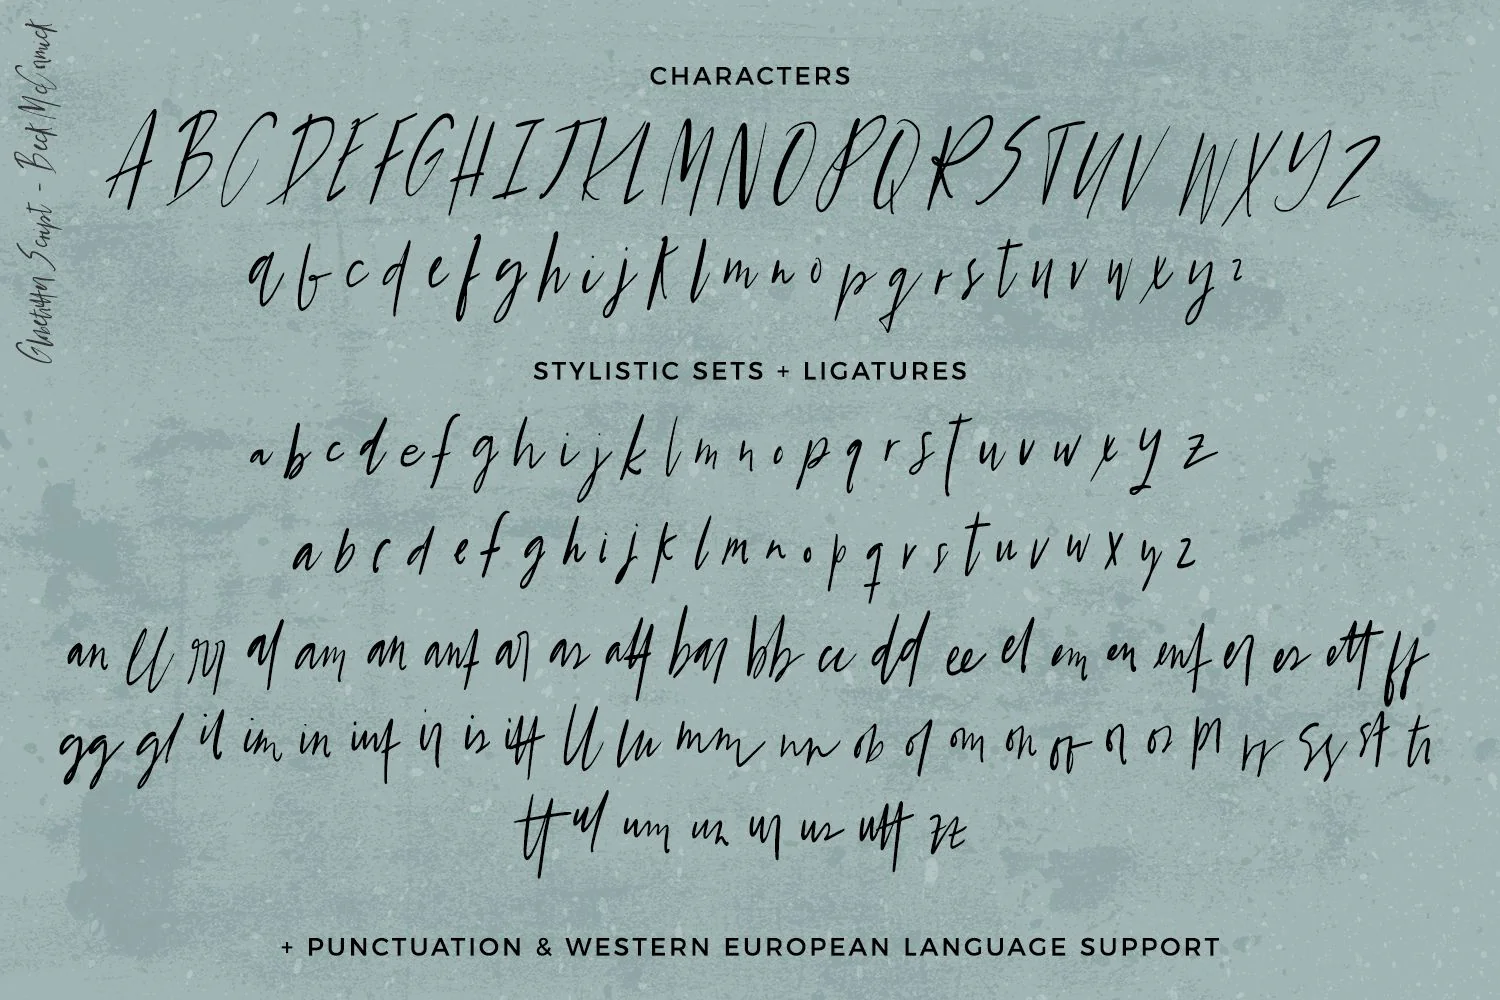 Script - Beck McCormick
CHARACTERS
A B C D E F G H I J K L M N O P Q R S T U V W X Y Z
a b c d e f g h i j k l m n o p q r s t u v w x y z
STYLISTIC SETS + LIGATURES
a b c d e f g h i j k l m n o p q r s t u v w x y z
a b c d e f g h i j k l m n o p q r s t u v w x y z
an ll rr al am an ant ar as att bb cc dd ee el em en ent er es ett ff
gg gl il im in int ir is itt ll mm nn ob ol om on or os pl rr ss st
tt ul um un ur us utt zz
+ PUNCTUATION & WESTERN EUROPEAN LANGUAGE SUPPORT